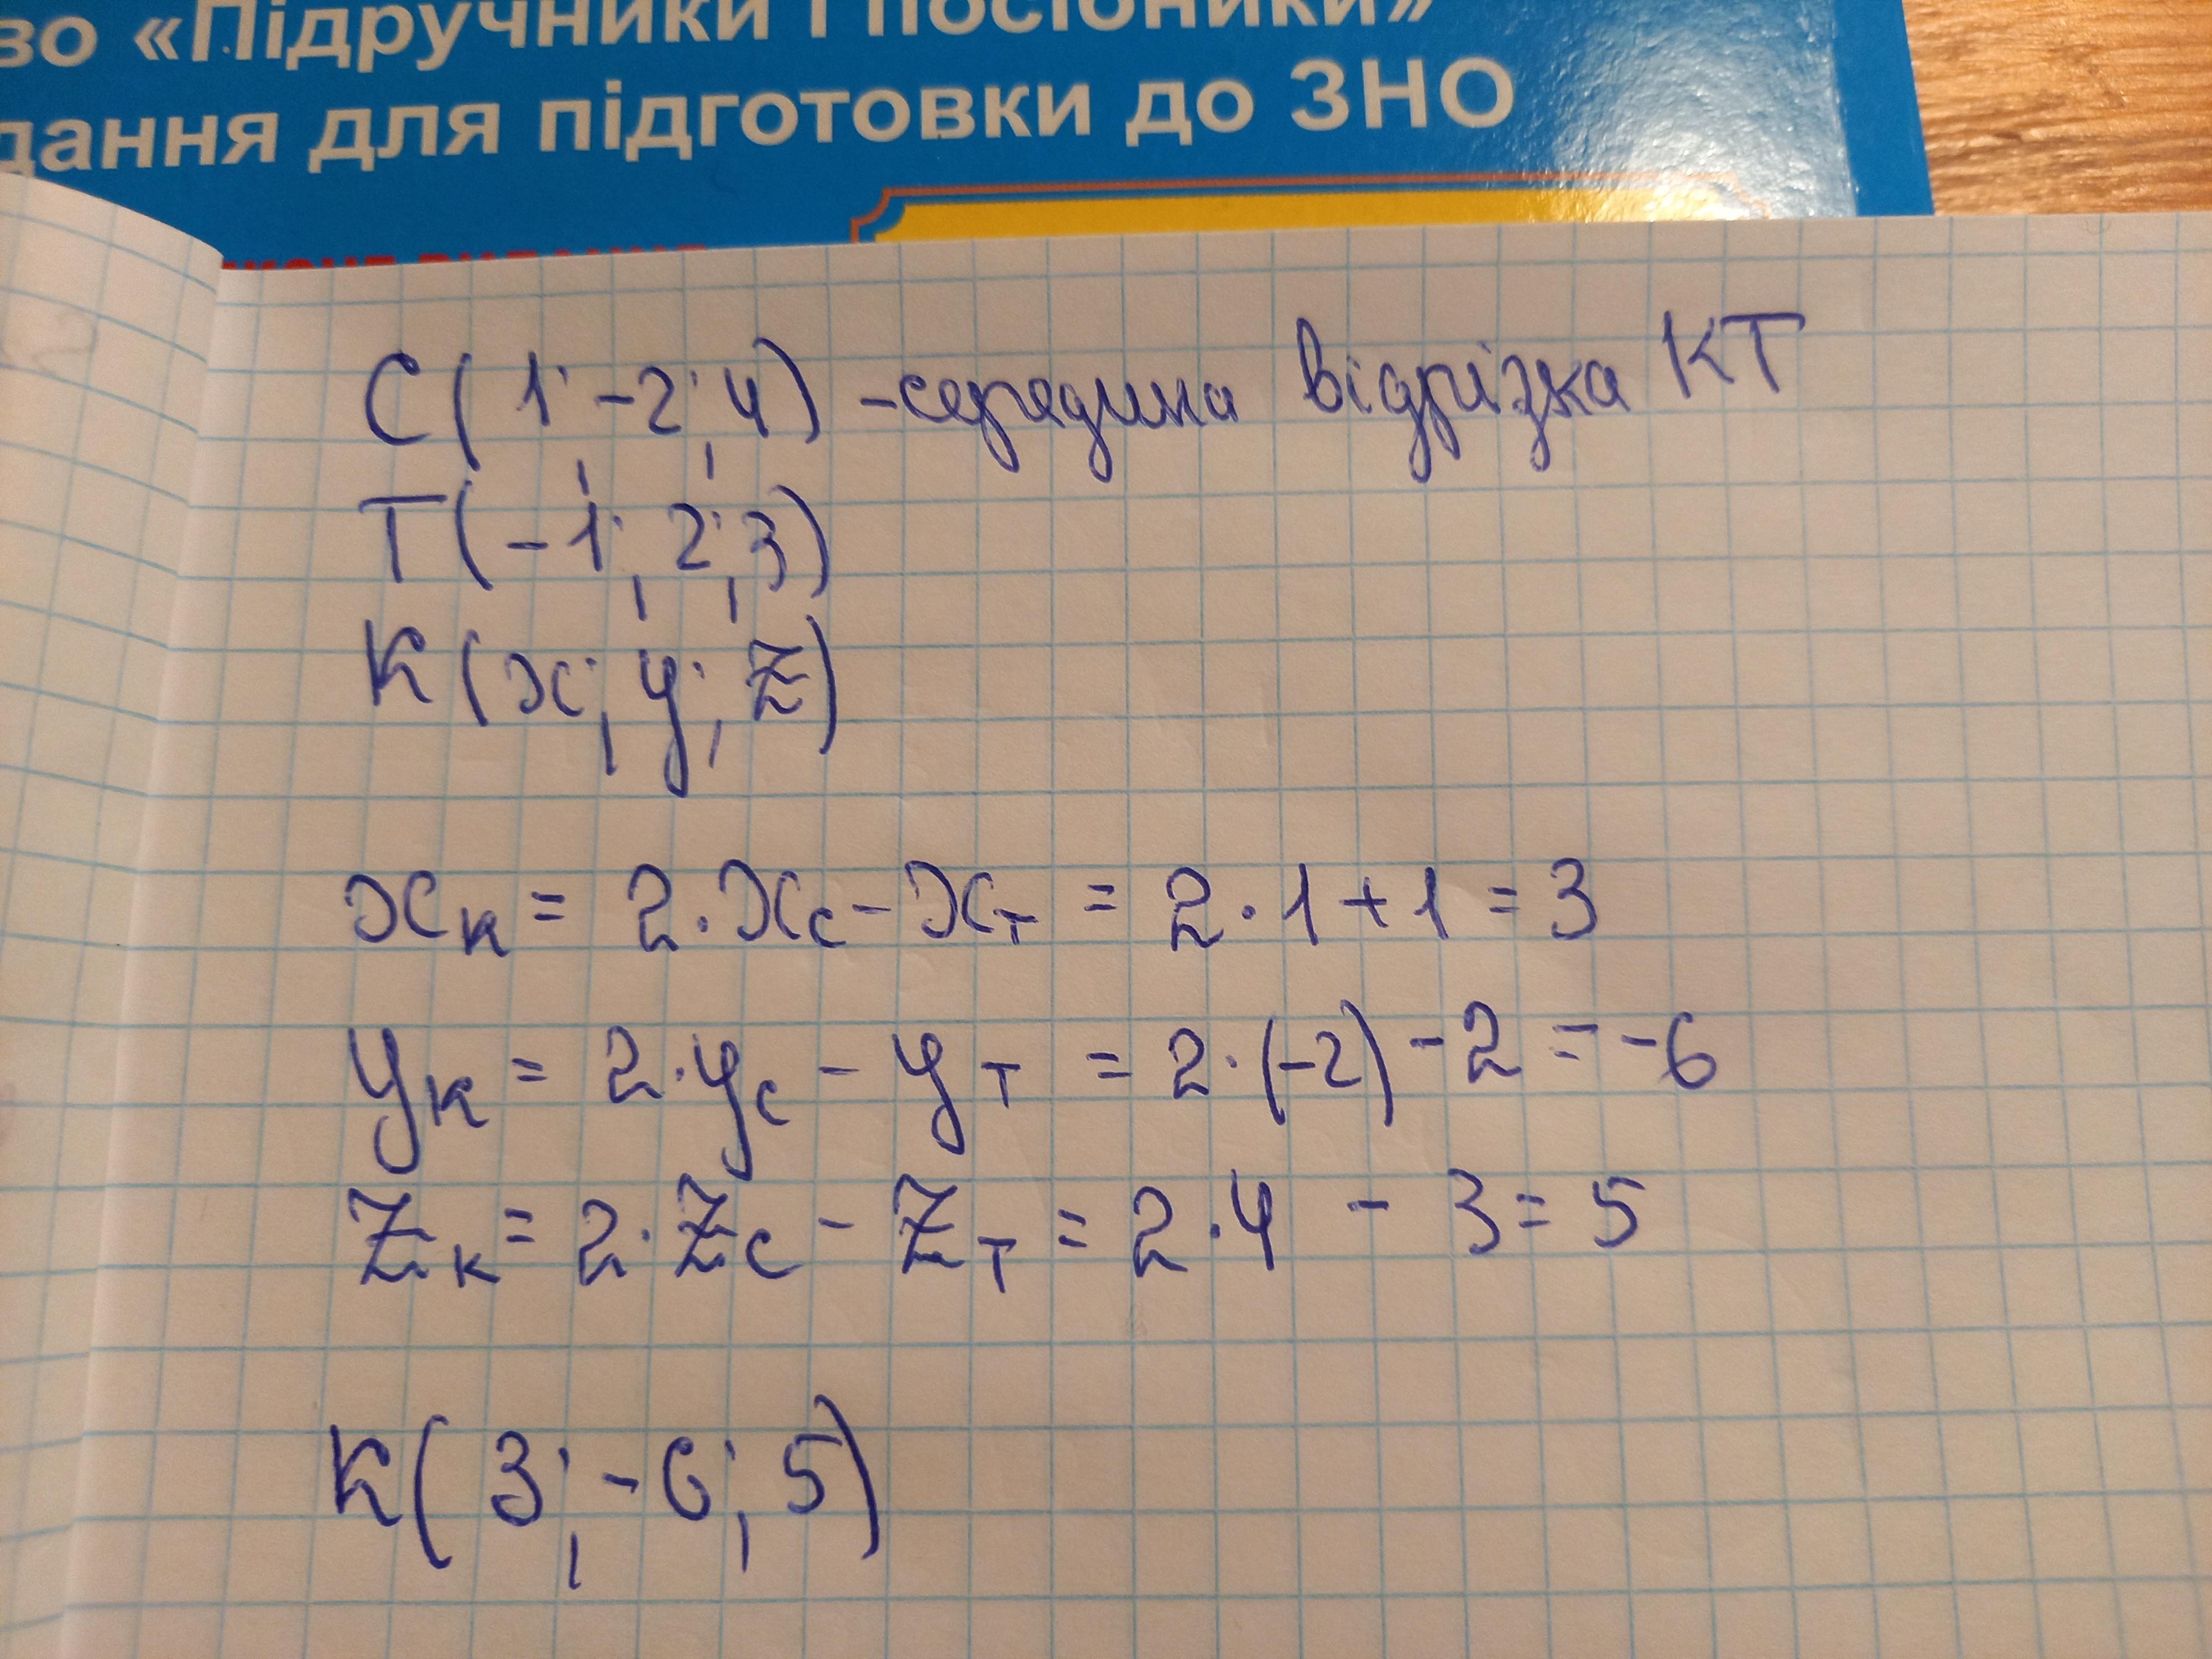 во «Підручники і посібники»
дання для підготовки до ЗНО
C(1; -2; 4) - середина відрізка KT
T(-1; 2; 3)
K(x; y; z)
xк = 2·xс - xт = 2·1+1 = 3
yк = 2·yс - yт = 2·(-2) - 2 = -6
zк = 2·zс - zт = 2·4 - 3 = 5
K(3; -6; 5)